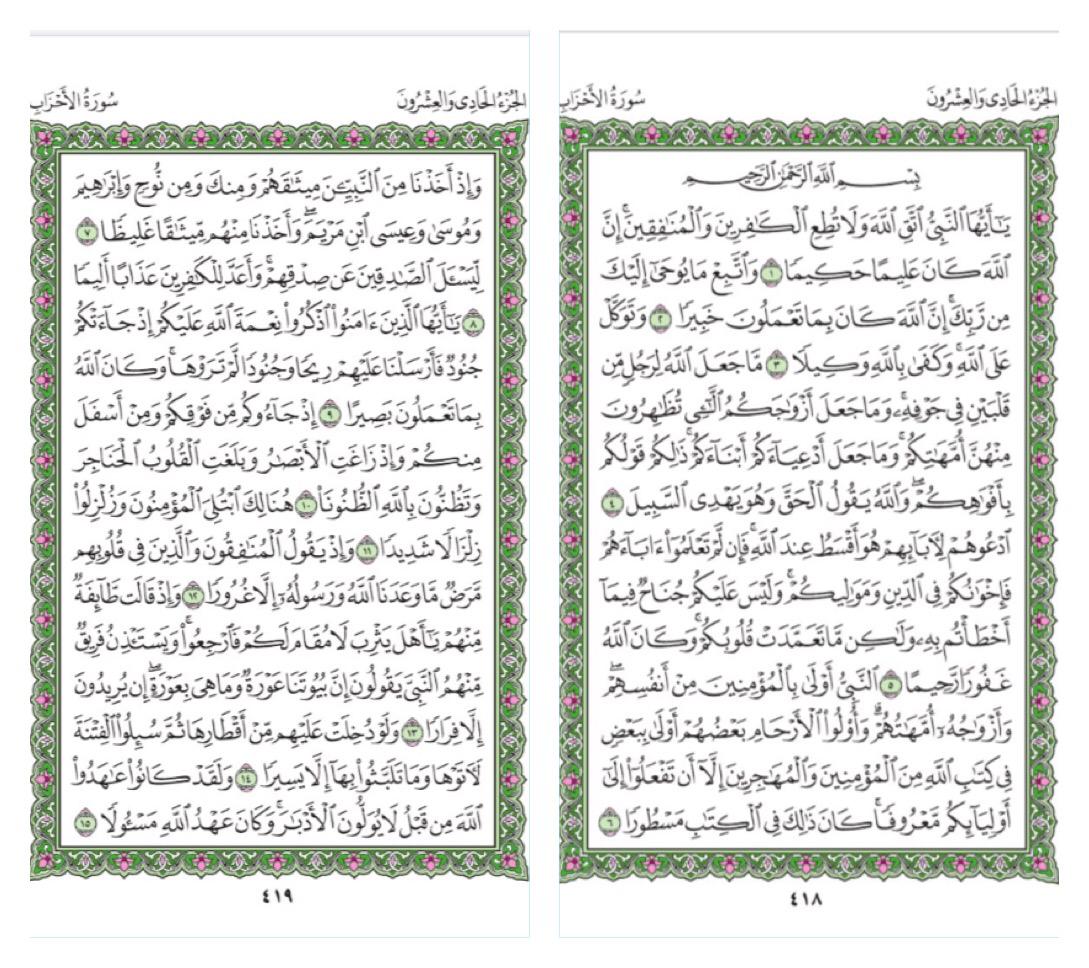 الجُزْءُ الحَادِى وَالعِشْرُونَ
سُورَةُ الأَحْزَابِ
بِسْمِ ٱللَّهِ ٱلرَّحْمَٰنِ ٱلرَّحِيمِ
يَٰٓأَيُّهَا ٱلنَّبِىُّ ٱتَّقِ ٱللَّهَ وَلَا تُطِعِ ٱلْكَٰفِرِينَ وَٱلْمُنَٰفِقِينَۗ إِنَّ
ٱللَّهَ كَانَ عَلِيمًا حَكِيمًا ١ وَٱتَّبِعْ مَا يُوحَىٰٓ إِلَيْكَ
مِن رَّبِّكَۚ إِنَّ ٱللَّهَ كَانَ بِمَا تَعْمَلُونَ خَبِيرًا ٢ وَتَوَكَّلْ
عَلَى ٱللَّهِۚ وَكَفَىٰ بِٱللَّهِ وَكِيلًا ٣ مَّا جَعَلَ ٱللَّهُ لِرَجُلٍ مِّن
قَلْبَيْنِ فِى جَوْفِهِۦۚ وَمَا جَعَلَ أَزْوَٰجَكُمُ ٱلَّٰٓـِٔى تُظَٰهِرُونَ
مِنْهُنَّ أُمَّهَٰتِكُمْۚ وَمَا جَعَلَ أَدْعِيَآءَكُمْ أَبْنَآءَكُمْۚ ذَٰلِكُمْ قَوْلُكُم
بِأَفْوَٰهِكُمْۖ وَٱللَّهُ يَقُولُ ٱلْحَقَّ وَهُوَ يَهْدِى ٱلسَّبِيلَ ٤
ٱدْعُوهُمْ لِأَبَآئِهِمْ هُوَ أَقْسَطُ عِندَ ٱللَّهِۚ فَإِن لَّمْ تَعْلَمُوٓا۟ ءَابَآءَهُمْ
فَإِخْوَٰنُكُمْ فِى ٱلدِّينِ وَمَوَٰلِيكُمْۚ وَلَيْسَ عَلَيْكُمْ جُنَاحٌ فِيمَآ
أَخْطَأْتُم بِهِۦ وَلَٰكِن مَّا تَعَمَّدَتْ قُلُوبُكُمْۚ وَكَانَ ٱللَّهُ
غَفُورًا رَّحِيمًا ٥ ٱلنَّبِىُّ أَوْلَىٰ بِٱلْمُؤْمِنِينَ مِنْ أَنفُسِهِمْۖ
وَأَزْوَٰجُهُۥٓ أُمَّهَٰتُهُمْۗ وَأُو۟لُوا۟ ٱلْأَرْحَامِ بَعْضُهُمْ أَوْلَىٰ بِبَعْضٍ
فِى كِتَٰبِ ٱللَّهِ مِنَ ٱلْمُؤْمِنِينَ وَٱلْمُهَٰجِرِينَ إِلَّآ أَن تَفْعَلُوٓا۟ إِلَىٰٓ
أَوْلِيَآئِكُم مَّعْرُوفًاۚ كَانَ ذَٰلِكَ فِى ٱلْكِتَٰبِ مَسْطُورًا ٦
٤١٨
الجُزْءُ الحَادِى وَالعِشْرُونَ
سُورَةُ الأَحْزَابِ
وَإِذْ أَخَذْنَا مِنَ ٱلنَّبِيِّۦنَ مِيثَٰقَهُمْ وَمِنكَ وَمِن نُّوحٍ وَإِبْرَٰهِيمَ
وَمُوسَىٰ وَعِيسَى ٱبْنِ مَرْيَمَۖ وَأَخَذْنَا مِنْهُم مِّيثَٰقًا غَلِيظًا ٧
لِّيَسْـَٔلَ ٱلصَّٰدِقِينَ عَن صِدْقِهِمْۚ وَأَعَدَّ لِلْكَٰفِرِينَ عَذَابًا أَلِيمًا
٨ يَٰٓأَيُّهَا ٱلَّذِينَ ءَامَنُوا۟ ٱذْكُرُوا۟ نِعْمَةَ ٱللَّهِ عَلَيْكُمْ إِذْ جَآءَتْكُمْ
جُنُودٌ فَأَرْسَلْنَا عَلَيْهِمْ رِيحًا وَجُنُودًا لَّمْ تَرَوْهَاۚ وَكَانَ ٱللَّهُ
بِمَا تَعْمَلُونَ بَصِيرًا ٩ إِذْ جَآءُوكُم مِّن فَوْقِكُمْ وَمِنْ أَسْفَلَ
مِنكُمْ وَإِذْ زَاغَتِ ٱلْأَبْصَٰرُ وَبَلَغَتِ ٱلْقُلُوبُ ٱلْحَنَاجِرَ
وَتَظُنُّونَ بِٱللَّهِ ٱلظُّنُونَا۠ ١٠ هُنَالِكَ ٱبْتُلِىَ ٱلْمُؤْمِنُونَ وَزُلْزِلُوا۟
زِلْزَالًا شَدِيدًا ١١ وَإِذْ يَقُولُ ٱلْمُنَٰفِقُونَ وَٱلَّذِينَ فِى قُلُوبِهِم
مَّرَضٌ مَّا وَعَدَنَا ٱللَّهُ وَرَسُولُهُۥٓ إِلَّا غُرُورًا ١٢ وَإِذْ قَالَت طَّآئِفَةٌ
مِّنْهُمْ يَٰٓأَهْلَ يَثْرِبَ لَا مُقَامَ لَكُمْ فَٱرْجِعُوا۟ۚ وَيَسْتَـْٔذِنُ فَرِيقٌ
مِّنْهُمُ ٱلنَّبِىَّ يَقُولُونَ إِنَّ بُيُوتَنَا عَوْرَةٌ وَمَا هِىَ بِعَوْرَةٍۖ إِن يُرِيدُونَ
إِلَّا فِرَارًا ١٣ وَلَوْ دُخِلَتْ عَلَيْهِم مِّنْ أَقْطَارِهَا ثُمَّ سُئِلُوا۟ ٱلْفِتْنَةَ
لَءَاتَوْهَا وَمَا تَلَبَّثُوا۟ بِهَآ إِلَّا يَسِيرًا ١٤ وَلَقَدْ كَانُوا۟ عَٰهَدُوا۟
ٱللَّهَ مِن قَبْلُ لَا يُوَلُّونَ ٱلْأَدْبَٰرَۚ وَكَانَ عَهْدُ ٱللَّهِ مَسْـُٔولًا ١٥
٤١٩